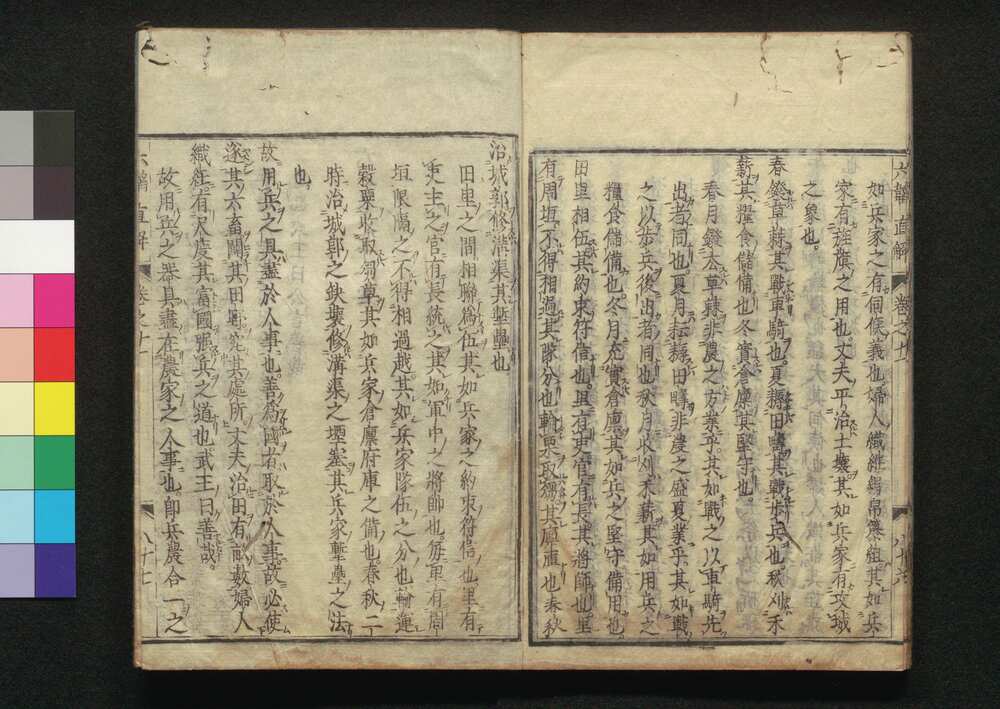 六韜直解 卷之十一 八十六
如兵家之有伺候義也婦人織維綿帛篡組其如兵
家有旌旗之用也丈夫平治土壤其如兵家有攻城
之象也
春鏺草棘其戰車騎也夏耨田疇其戰步兵也秋刈禾
薪其糧食儲備也冬實倉廩其堅守也
春月鏺去草棘非農之方業乎其如戰之以車騎先
出者同也夏月耘耨田疇非農之盛夏業乎其如戰
之以步兵後出者同也秋月收刈禾薪其如用兵之
糧食儲備也冬月充實倉廩其如兵之堅守備用也
田里相伍其約束符信也里有吏官有長其將帥也里
有周垣不得相過其隊分也輸粟取芻其廩庫也春秋
治城郭修溝渠其塹壘也
田里之間相聯爲伍其如兵家之約束符信也里有
吏主之官有長統之其如軍中之將帥也每里有周
垣限隔之不得相過越其如兵家隊伍之分也輸運
穀粟收取芻草其如兵家倉廩府庫之備也春秋二
時治城郭之缺壞修溝渠之堙塞其兵家塹壘之法
也
故用兵之具盡於人事也善爲國者取於人事故必使
遂其六畜闢其田野究其處所丈夫治田有畝數婦人
織紝有尺度其富國强兵之道也武王曰善哉
故用兵之器具盡在農家之人事也卽兵農合一之
六韜直解 卷之十一 八十七